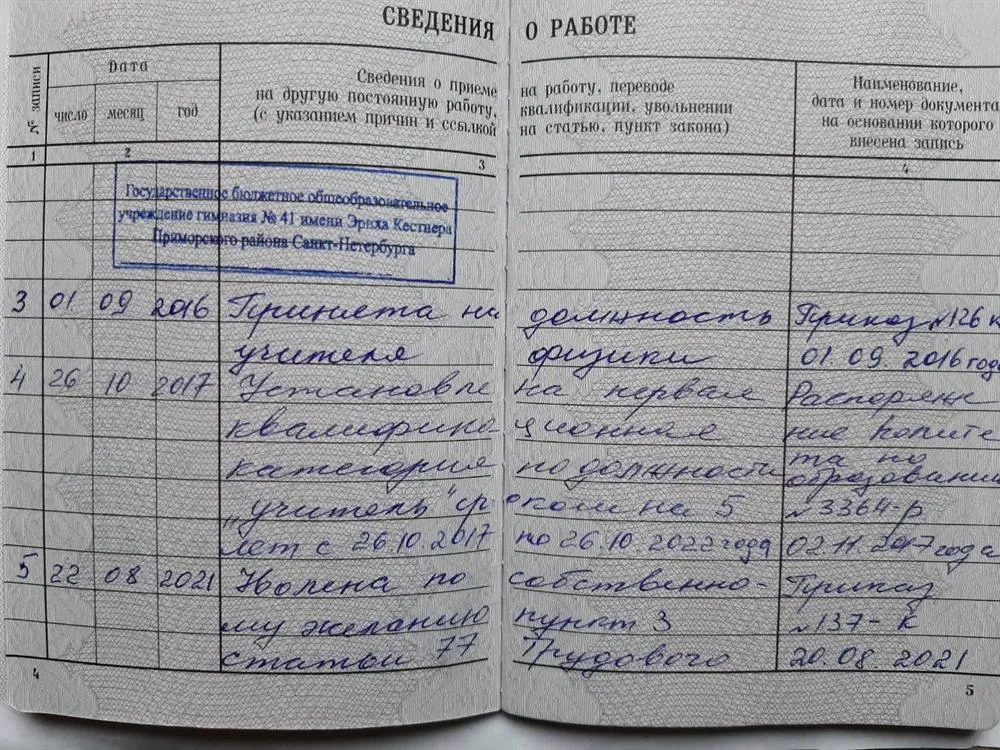 СВЕДЕНИЯ О РАБОТЕ
№ записи
Дата
число месяц год
Сведения о приеме на работу, переводе
на другую постоянную работу, квалификации, увольнении
(с указанием причин и ссылкой на статью, пункт закона)
Наименование,
дата и номер документа,
на основании которого
внесена запись
1 2 3 4
Государственное бюджетное общеобразовательное
учреждение гимназия № 41 имени Эриха Кестнера
Приморского района Санкт-Петербурга
3 01 09 2016 Принята на должность Приказ №126 к
учителя физики 01.09.2016 года
4 26 10 2017 Установле на первая Распоряже
квалифика ционная ние Комите
категория по должности та по
образованию
„учитель" ср оком на 5 №3364-р
лет с 26.10.2017 по 26.10 2022 года 02.11.2017 года
5 22 08 2021 Уволена по собственно- Приказ
му желанию пункт 3 №137-к
статьи 77 Трудового 20.08.2021
4 5